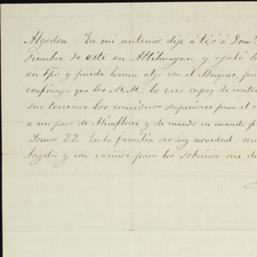 Algodon. En mi anterior dije a tio a Dom
siembra de este en Atlihuayan, y ojalá
en tpo y pueda hacer algo con el Marques,
confianza que los M.M. lo creo capaz de
sus terrenos los considero superiores para el
a un paso de Miraflores y de cuando en cuando
Tomos 22. En la familia no hay novedad
Angela y con cariños para los sobrinos me